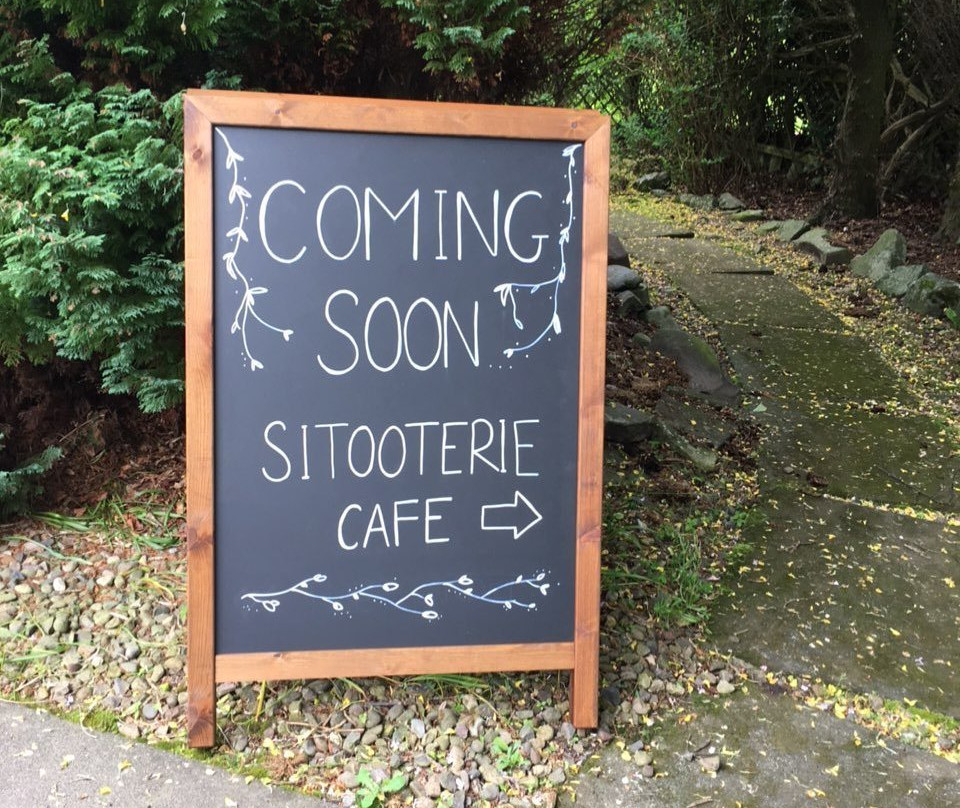 COMING
SOON
SITOOTERIE
CAFE